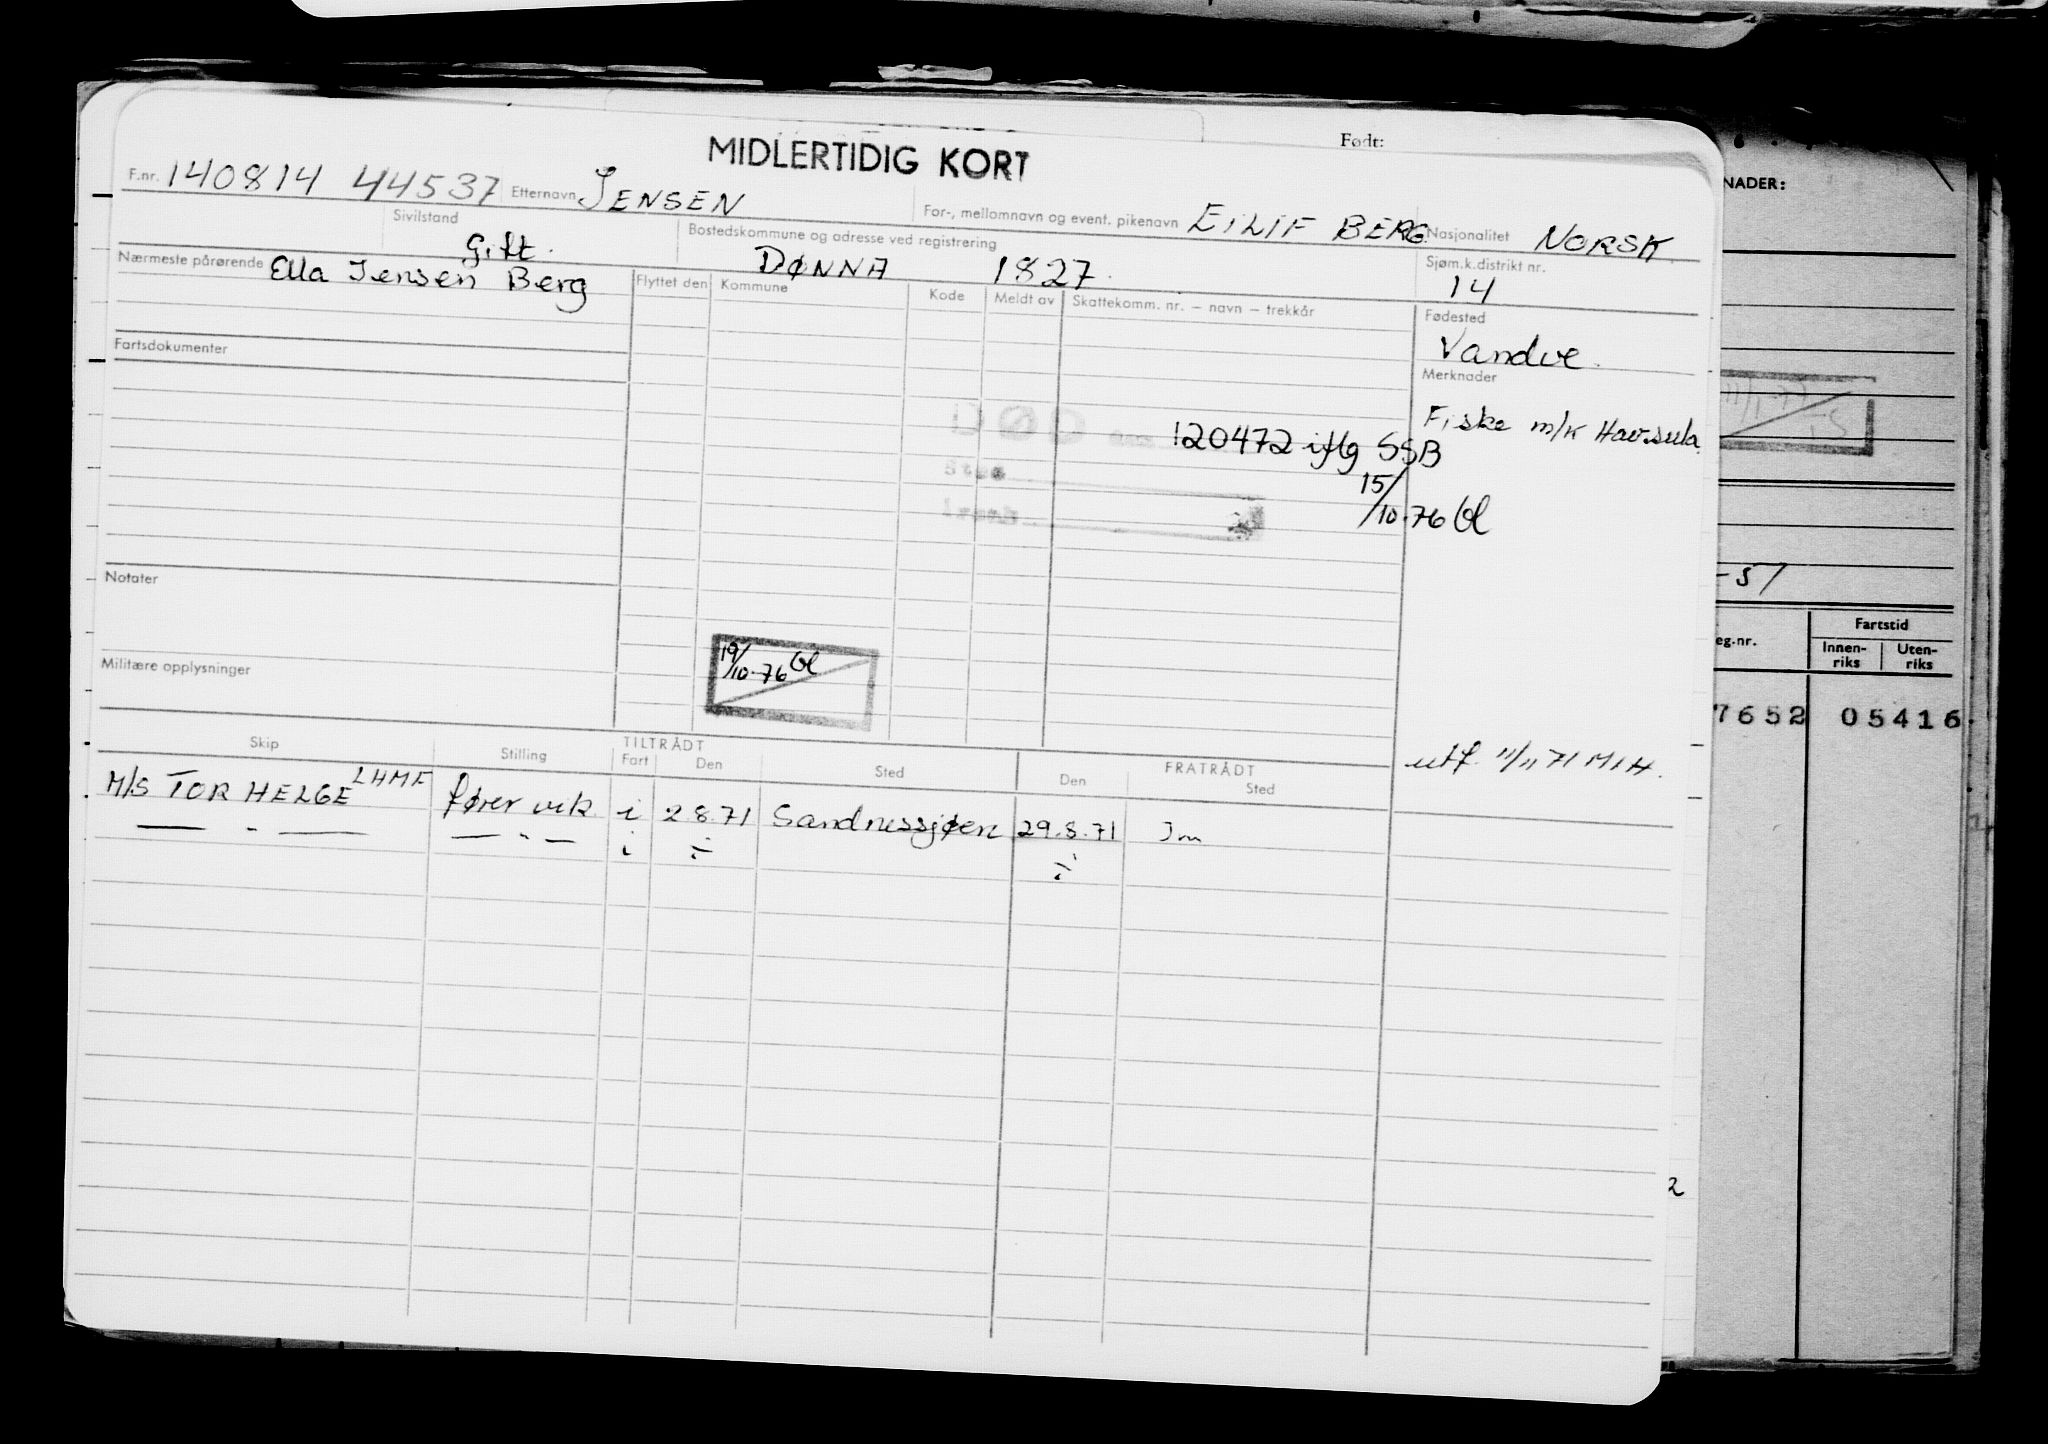 Født:
MIDLERTIDIG KORT
F.nr. 140814 44537 Etternavn JENSEN For-, mellomnavn og event. pikenavn EILIF BERG Nasjonalitet NORSK
Sivilstand Gift. Bostedskommune og adresse ved registrering DØNNA 1827. Sjøm.k.distrikt nr. 14
Nærmeste pårørende Ella Jensen Berg
Flyttet den Kommune Kode Meldt av Skattekomm. nr. – navn – trekkår
Fødested
Vandve.
Fartsdokumenter
Merknader
Fiske m/k Havsula
120472 iflg SSB
15/10.76
Notater
19/10-76
Militære opplysninger
utf. 11/11 71 MIH.
TILTRÅDT FRATRÅDT
Skip Stilling Fart Den Sted Den Sted
M/S TOR HELGE LHMF fører vik. i 2.8.71 Sandnessjøen 29.8.71
— " — — " — i ÷ ÷
NADER:
-51
eg.nr. Fartstid
Innen-riks Uten-riks
7652 05416
2